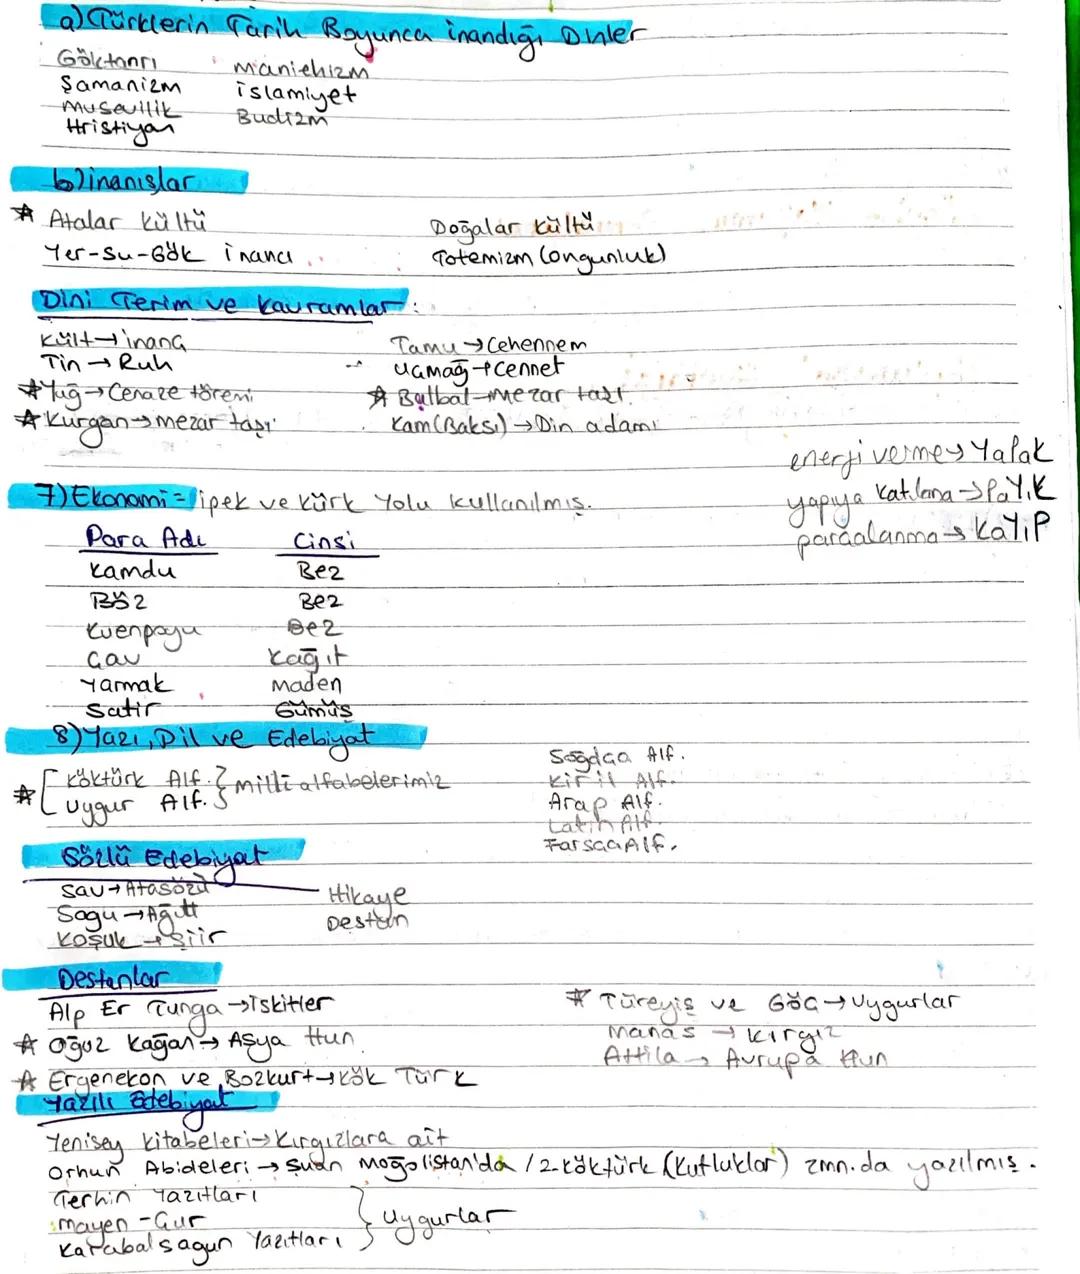 a) Türklerin Tarih Boyunca inandığı Dinler
Göktanrı maniehizm
Şamanizm islamiyet
Musevilik Budizm
Hristiyan
b) inanışlar
☆ Atalar kültü Doğalar kültü
Yer-Su-Gök inancı Totemizm (ongunluk)
Dini Terim ve kavramlar:
kült → inanç Tamu → Cehennem
Tin → Ruh uçmağ → Cennet
☆ Yuğ → Cenaze töreni ☆ Balbal → mezar taşı
☆ Kurgan → mezar taşı kam (Baksı) → Din adamı
enerji verme → Yapak
yapıya katılana → PaYıK
parçalanma → KaYıP
7) Ekonomi = ipek ve kürk Yolu kullanılmış.
Para Adı Cinsi
kamdu Bez
Böz Bez
kuenpoyu Bez
Çav kağıt
yarmak maden
satir Gümüş
8) Yazı, Dil ve Edebiyat
☆ [ köktürk Alf. } milli alfabelerimiz
Uygur Alf.
Soğdça Alf.
Kiril Alf.
Arap Alf.
Latin Alf.
Farsça Alf.
Sözlü Edebiyat
Sav → Atasözü Hikaye
Sagu → Ağıt Destan
Koşuk → Şiir
Destanlar
Alp Er Tunga → İskitler ☆ Türeyiş ve Göç → Uygurlar
☆ Oğuz kağan → Asya Hun manas → kırgız
☆ Ergenekon ve Bozkurt → kök Türk Attila → Avrupa Hun
Yazılı Edebiyat
Yenisey kitabeleri → Kırgızlara ait
Orhun Abideleri → Şuan Moğolistan'da / 2. köktürk (kutluklar) zmn.da yazılmış.
Terhin Yazıtları
mayen - Çur } Uygurlar
Karabalsagun Yazıtları